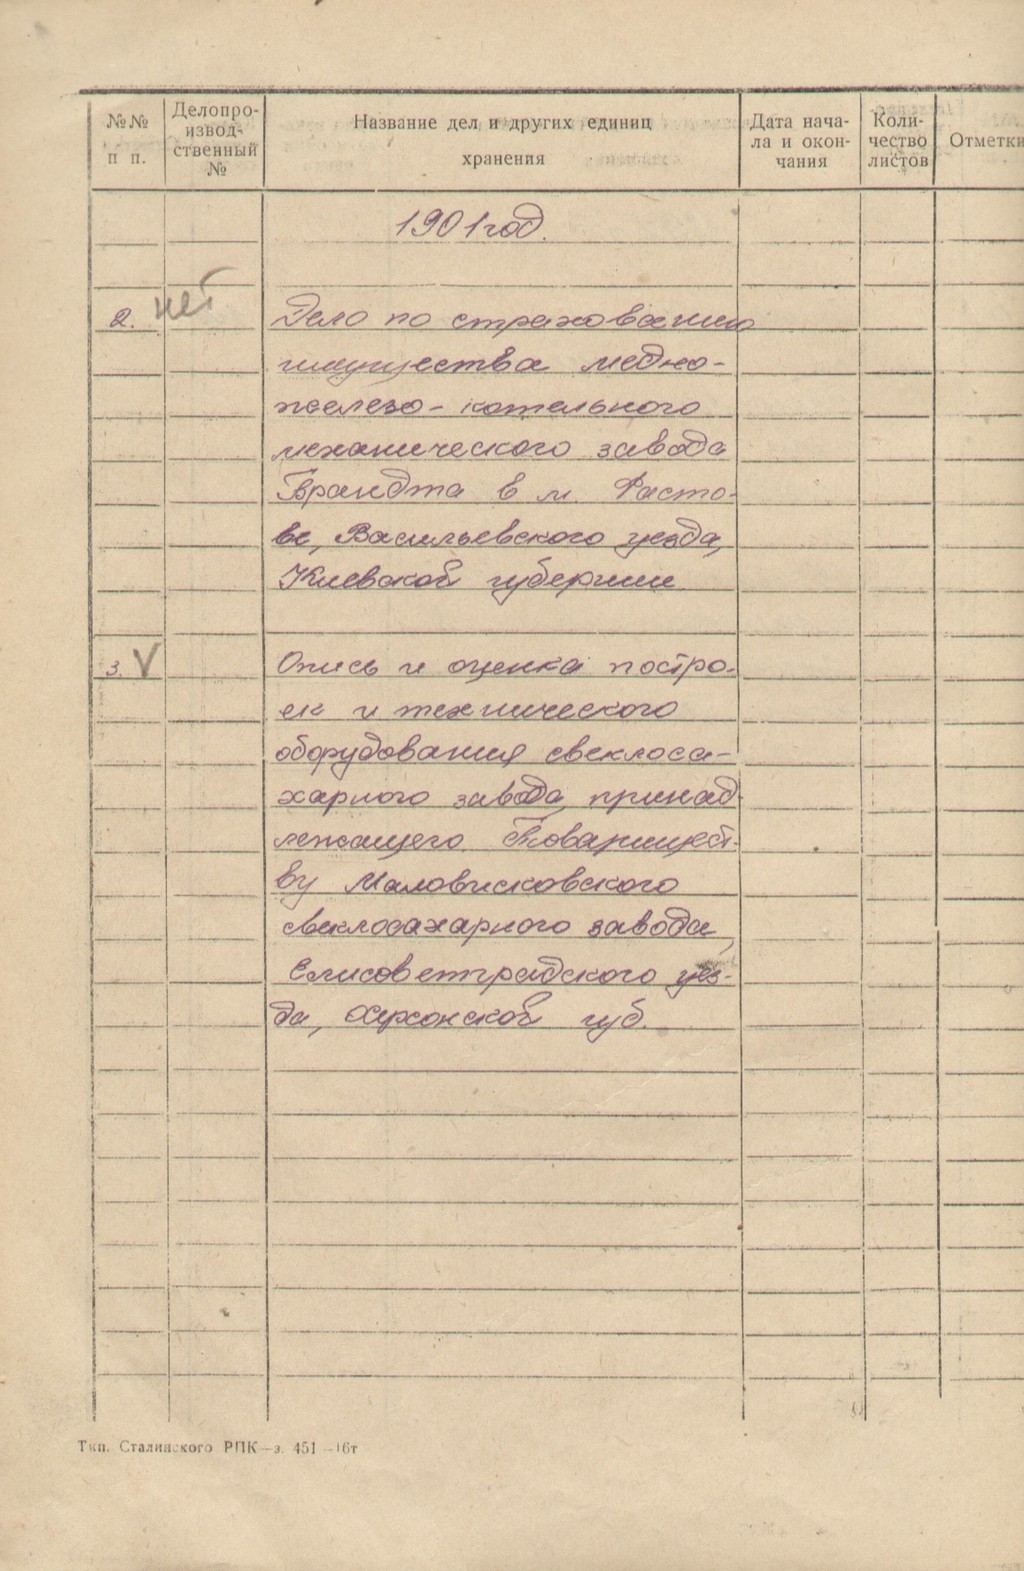 №№ п п.
Делопро-
извод-
ственный
№
Название дел и других единиц
хранения
Дата нача-
ла и окон-
чания
Коли-
чество
листов
Отметки
1901 год.
2. нет Дело по страхованию
имущества медно-
железо-котельного
механического завода
Брандта в м. Фасто-
ве, Васильевского уезда,
Киевской губернии
3. V Опись и оценка постро-
ек и технического
оборудования свеклоса-
харного завода, принад
лежащего Товарищест-
ву Маловисковского
свеклосахарного завода,
Елисоветградского уез-
да, Херсонской губ.
Тип. Сталинского РПК—з. 451 —16т